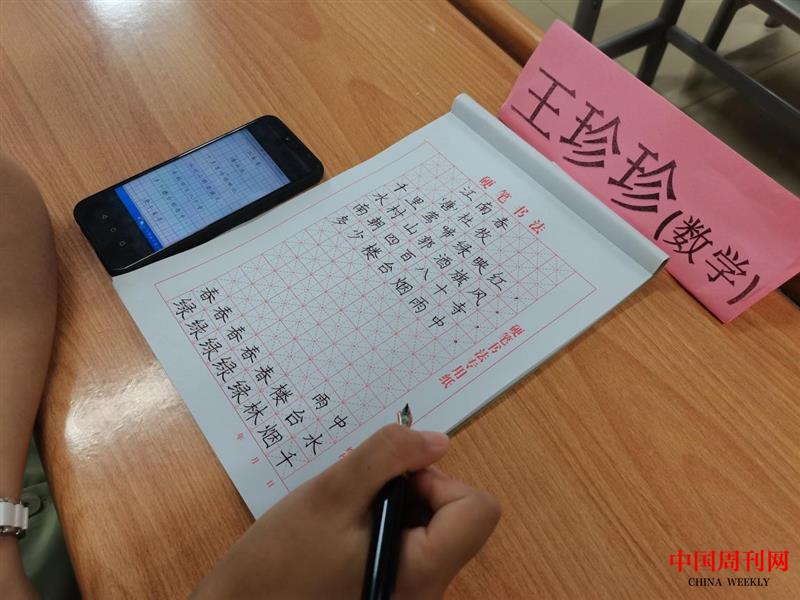 王珍珍(数学)
硬笔书法
江南春
唐杜牧
十里莺啼绿映红，
水村山郭酒旗风。
南朝四百八十寺，
多少楼台烟雨中。
雨中
春春春春春楼台水
绿绿绿绿绿林烟千
硬笔书法专用纸
年 月 日
中国周刊网
CHINA WEEKLY